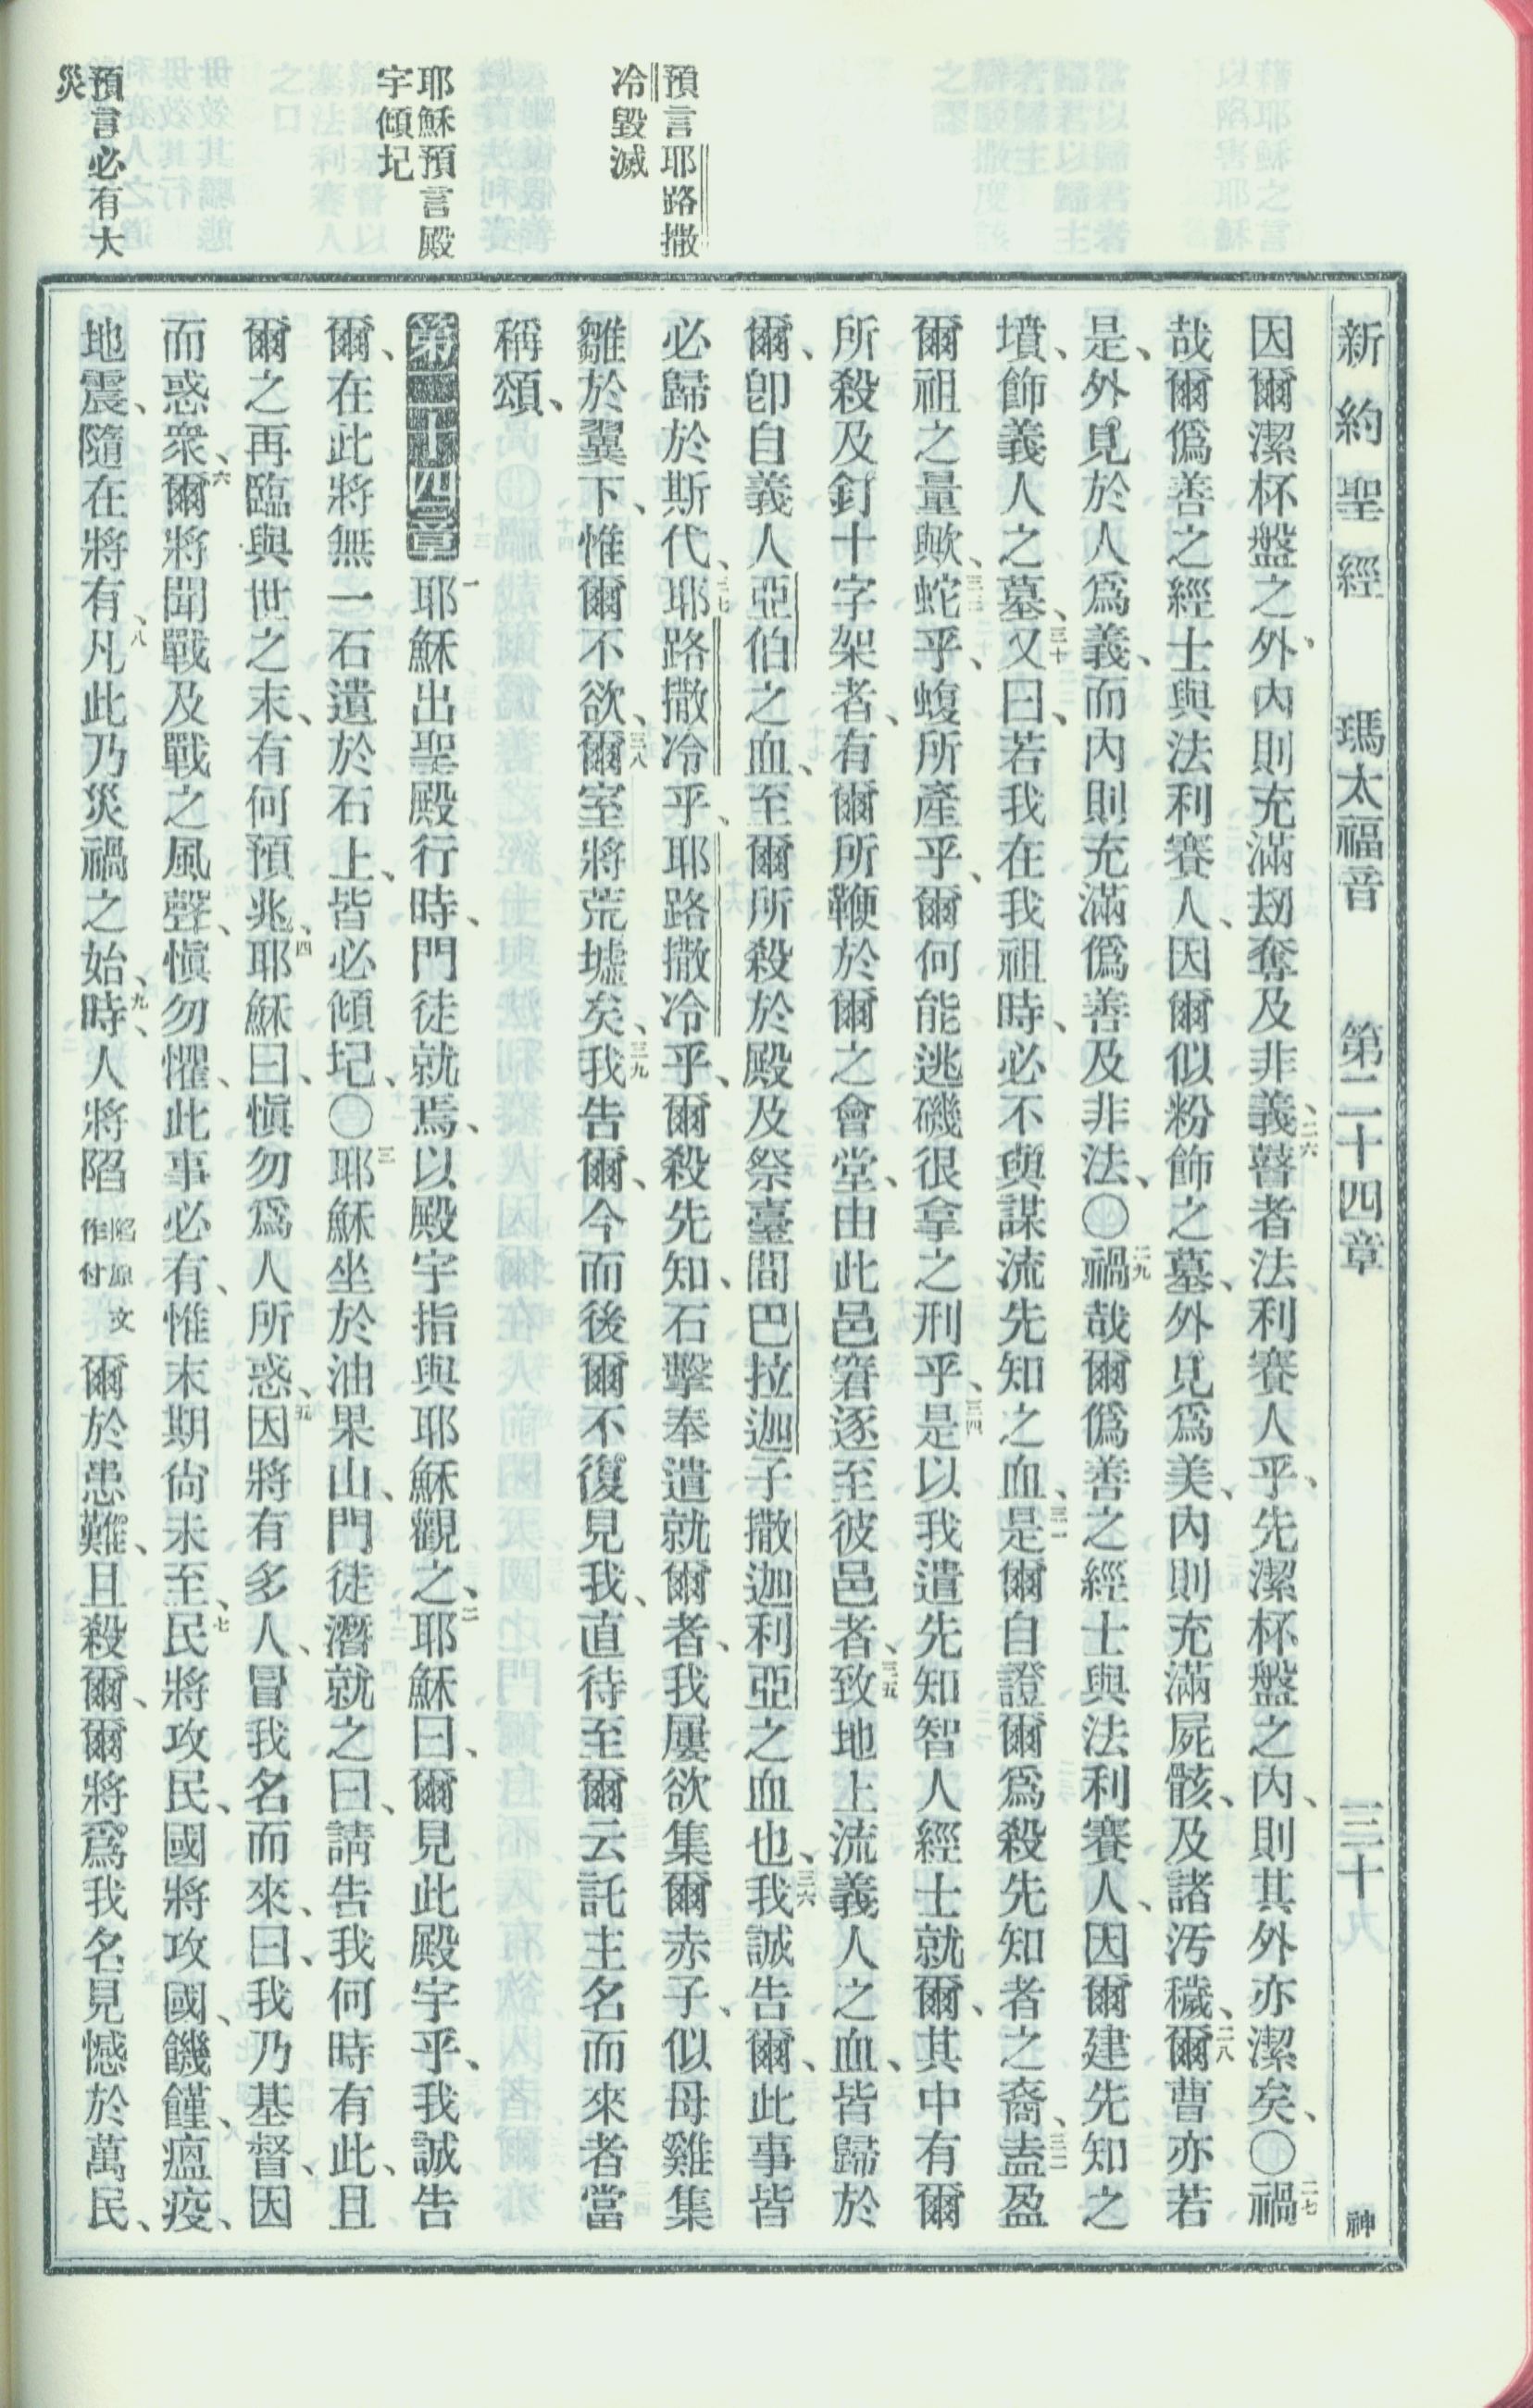 新約聖經 瑪太福音 第二十四章 三十 神
預言耶路撒
冷毀滅
耶穌預言殿
宇傾圮
預言必有大
災
因爾潔杯盤之外、內則充滿刼奪及非義、二六瞽者法利賽人乎、先潔杯盤之內、則其外亦潔矣、〇二七禍
哉爾僞善之經士與法利賽人、因爾似粉飾之墓、外見爲美、內則充滿屍骸、及諸汚穢、二八爾曹亦若
是、外見於人爲義、而內則充滿僞善及非法、〇二九禍哉爾僞善之經士與法利賽人、因爾建先知之
墳、飾義人之墓、三十又曰、若我在我祖時、必不與謀流先知之血、三一是爾自證爾爲殺先知者之裔、三二盍盈
爾祖之量歟、三三蛇乎、蝮所產乎、爾何能逃磯很拿之刑乎、三四是以我遣先知智人經士就爾、其中有爾
所殺及釘十字架者、有爾所鞭於爾之會堂、由此邑窘逐至彼邑者、三五致地上流義人之血、皆歸於
爾、卽自義人亞伯之血、至爾所殺於殿及祭臺間巴拉迦子撒迦利亞之血也、三六我誠告爾、此事皆
必歸於斯代、三七耶路撒冷乎、耶路撒冷乎、爾殺先知、石擊奉遣就爾者、我屢欲集爾赤子、似母雞集
雛於翼下、惟爾不欲、三八爾室將荒墟矣、三九我告爾、今而後爾不復見我、直待至爾云託主名而來者當
稱頌、
第二十四章 一耶穌出聖殿行時、門徒就焉、以殿宇指與耶穌觀之、二耶穌曰、爾見此殿宇乎、我誠告
爾、在此將無一石遺於石上、皆必傾圮、〇三耶穌坐於油果山、門徒潛就之曰、請告我何時有此、且
爾之再臨與世之末、有何預兆、四耶穌曰、愼勿爲人所惑、五因將有多人、冒我名而來、曰、我乃基督、因
而惑衆、六爾將聞戰及戰之風聲、愼勿懼、此事必有、惟末期尙未至、七民將攻民、國將攻國、饑饉、瘟疫、
地震、隨在將有、八凡此乃災禍之始、九時、人將陷陷原文作付爾於患難、且殺爾、爾將爲我名見憾於萬民、